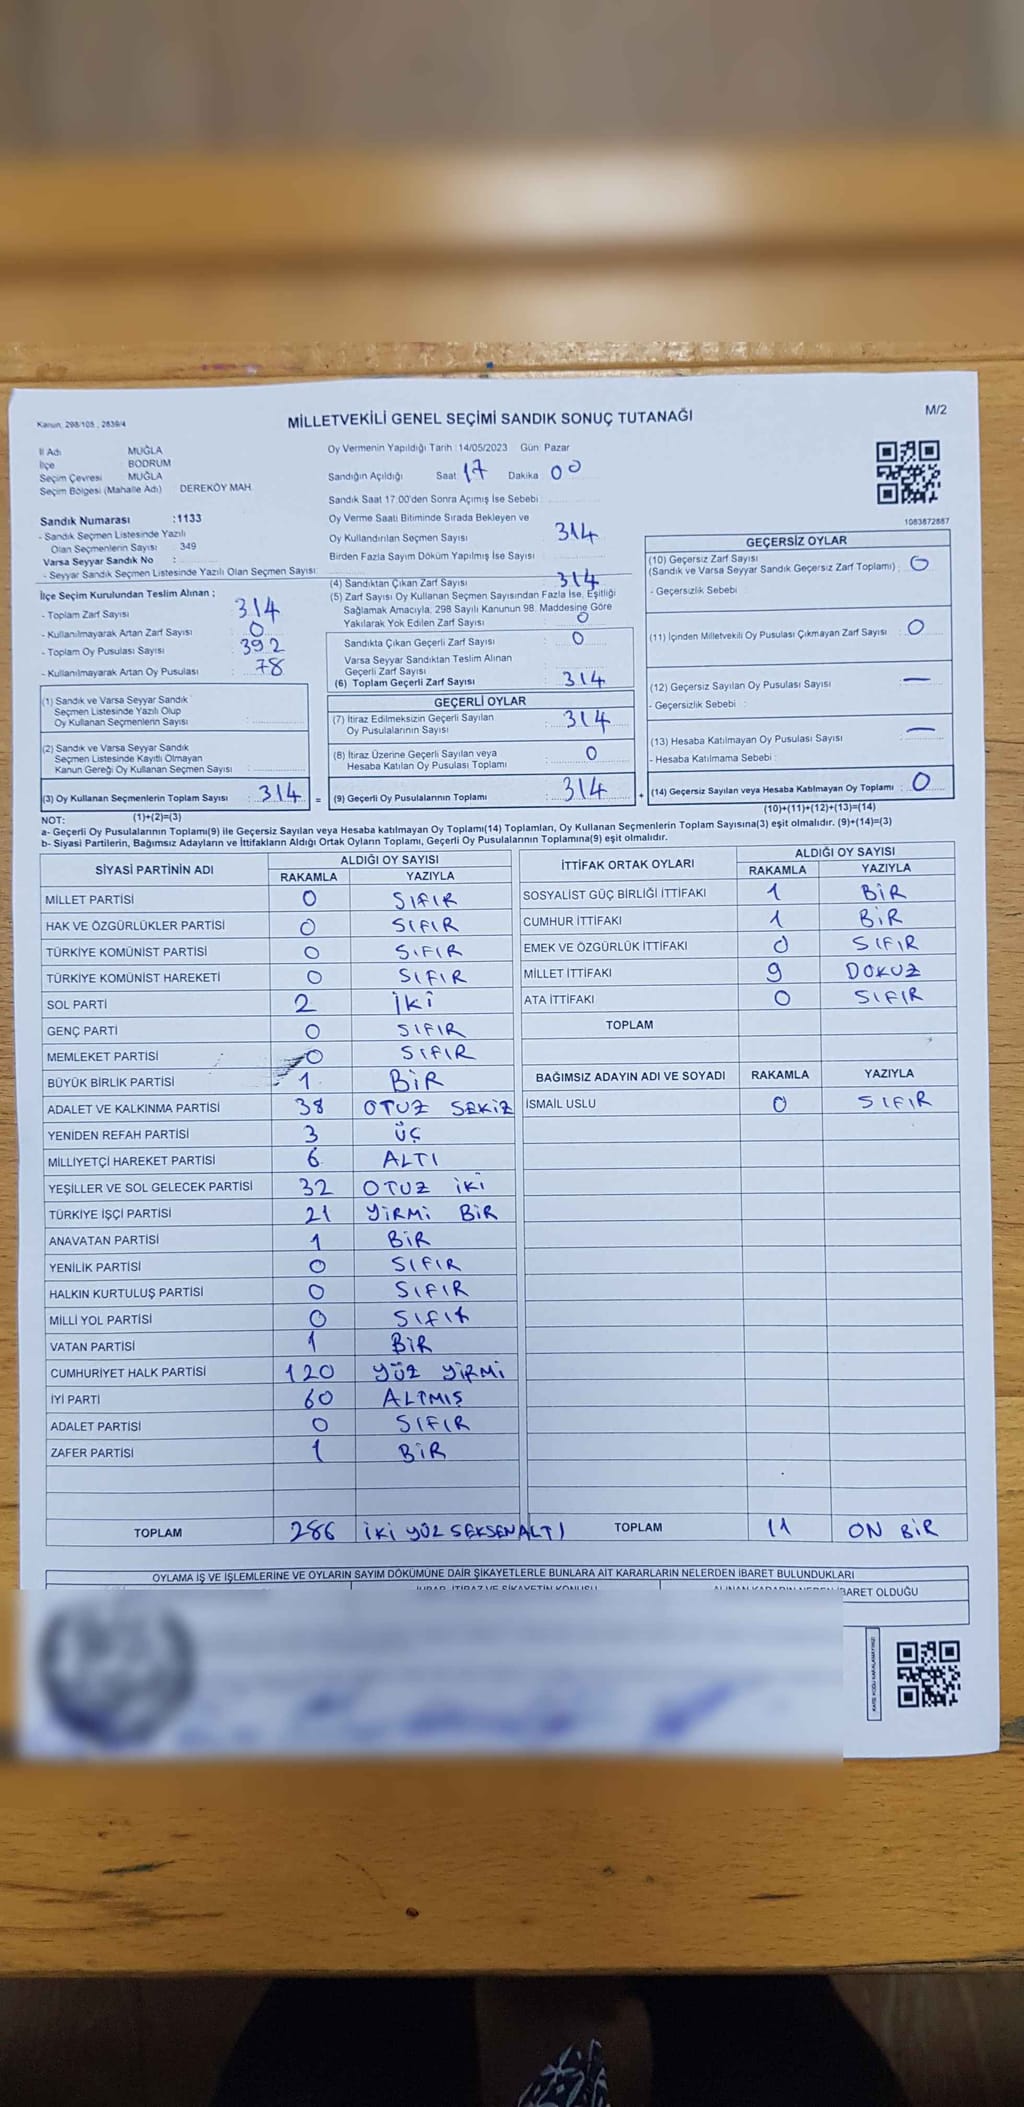 Kanun, 298/105 , 2839/4
MİLLETVEKİLİ GENEL SEÇİMİ SANDIK SONUÇ TUTANAĞI
M/2
İl Adı MUĞLA
İlçe BODRUM
Seçim Çevresi MUĞLA
Seçim Bölgesi (Mahalle Adı) DEREKÖY MAH.
Sandık Numarası :1133
- Sandık Seçmen Listesinde Yazılı
Olan Seçmenlerin Sayısı : 349
Varsa Seyyar Sandık No :
- Seyyar Sandık Seçmen Listesinde Yazılı Olan Seçmen Sayısı:
İlçe Seçim Kurulundan Teslim Alınan ;
- Toplam Zarf Sayısı : 314
- Kullanılmayarak Artan Zarf Sayısı : 0
- Toplam Oy Pusulası Sayısı : 392
- Kullanılmayarak Artan Oy Pusulası : 78
(1) Sandık ve Varsa Seyyar Sandık
Seçmen Listesinde Yazılı Olup
Oy Kullanan Seçmenlerin Sayısı :
(2) Sandık ve Varsa Seyyar Sandık
Seçmen Listesinde Kayıtlı Olmayan
Kanun Gereği Oy Kullanan Seçmen Sayısı :
(3) Oy Kullanan Seçmenlerin Toplam Sayısı : 314 =
(1)+(2)=(3)
Oy Vermenin Yapıldığı Tarih :14/05/2023 Gün: Pazar
Sandığın Açıldığı Saat 17 Dakika 00
Sandık Saat 17.00'den Sonra Açımış İse Sebebi :
Oy Verme Saati Bitiminde Sırada Bekleyen ve
Oy Kullandırılan Seçmen Sayısı : 314
Birden Fazla Sayım Döküm Yapılmış İse Sayısı :
(4) Sandıktan Çıkan Zarf Sayısı : 314
(5) Zarf Sayısı Oy Kullanan Seçmen Sayısından Fazla İse, Eşitliği
Sağlamak Amacıyla, 298 Sayılı Kanunun 98. Maddesine Göre
Yakılarak Yok Edilen Zarf Sayısı : 0
Sandıkta Çıkan Geçerli Zarf Sayısı : 0
Varsa Seyyar Sandıktan Teslim Alınan
Geçerli Zarf Sayısı :
(6) Toplam Geçerli Zarf Sayısı : 314
GEÇERLİ OYLAR
(7) İtiraz Edilmeksizin Geçerli Sayılan
Oy Pusulalarının Sayısı : 314
(8) İtiraz Üzerine Geçerli Sayılan veya
Hesaba Katılan Oy Pusulası Toplamı : 0
(9) Geçerli Oy Pusulalarının Toplamı : 314 +
1083872887
GEÇERSİZ OYLAR
(10) Geçersiz Zarf Sayısı
(Sandık ve Varsa Seyyar Sandık Geçersiz Zarf Toplamı) : 0
- Geçersizlik Sebebi :
(11) İçinden Milletvekili Oy Pusulası Çıkmayan Zarf Sayısı : 0
(12) Geçersiz Sayılan Oy Pusulası Sayısı : —
- Geçersizlik Sebebi :
(13) Hesaba Katılmayan Oy Pusulası Sayısı : —
- Hesaba Katılmama Sebebi :
(14) Geçersiz Sayılan veya Hesaba Katılmayan Oy Toplamı : 0
(10)+(11)+(12)+(13)=(14)
NOT:
a- Geçerli Oy Pusulalarının Toplamı(9) ile Geçersiz Sayılan veya Hesaba katılmayan Oy Toplamı(14) Toplamları, Oy Kullanan Seçmenlerin Toplam Sayısına(3) eşit olmalıdır. (9)+(14)=(3)
b- Siyasi Partilerin, Bağımsız Adayların ve İttifakların Aldığı Ortak Oyların Toplamı, Geçerli Oy Pusulalarının Toplamına(9) eşit olmalıdır.
SİYASİ PARTİNİN ADI ALDIĞI OY SAYISI
RAKAMLA YAZIYLA
MİLLET PARTİSİ 0 SIFIR
HAK VE ÖZGÜRLÜKLER PARTİSİ 0 SIFIR
TÜRKİYE KOMÜNİST PARTİSİ 0 SIFIR
TÜRKİYE KOMÜNİST HAREKETİ 0 SIFIR
SOL PARTİ 2 İKİ
GENÇ PARTİ 0 SIFIR
MEMLEKET PARTİSİ 0 SIFIR
BÜYÜK BİRLİK PARTİSİ 1 BİR
ADALET VE KALKINMA PARTİSİ 38 OTUZ SEKİZ
YENİDEN REFAH PARTİSİ 3 ÜÇ
MİLLİYETÇİ HAREKET PARTİSİ 6 ALTI
YEŞİLLER VE SOL GELECEK PARTİSİ 32 OTUZ İKİ
TÜRKİYE İŞÇİ PARTİSİ 21 YİRMİ BİR
ANAVATAN PARTİSİ 1 BİR
YENİLİK PARTİSİ 0 SIFIR
HALKIN KURTULUŞ PARTİSİ 0 SIFIR
MİLLİ YOL PARTİSİ 0 SIFIR
VATAN PARTİSİ 1 BİR
CUMHURİYET HALK PARTİSİ 120 YÜZ YİRMİ
İYİ PARTİ 60 ALTMIŞ
ADALET PARTİSİ 0 SIFIR
ZAFER PARTİSİ 1 BİR
TOPLAM 286 İKİ YÜZ SEKSEN ALTI
İTTİFAK ORTAK OYLARI ALDIĞI OY SAYISI
RAKAMLA YAZIYLA
SOSYALİST GÜÇ BİRLİĞİ İTTİFAKI 1 BİR
CUMHUR İTTİFAKI 1 BİR
EMEK VE ÖZGÜRLÜK İTTİFAKI 0 SIFIR
MİLLET İTTİFAKI 9 DOKUZ
ATA İTTİFAKI 0 SIFIR
TOPLAM
BAĞIMSIZ ADAYIN ADI VE SOYADI RAKAMLA YAZIYLA
İSMAİL USLU 0 SIFIR
TOPLAM 11 ON BİR
OYLAMA İŞ VE İŞLEMLERİNE VE OYLARIN SAYIM DÖKÜMÜNE DAİR ŞİKAYETLERLE BUNLARA AİT KARARLARIN NELERDEN İBARET BULUNDUKLARI
İBARET OLDUĞU